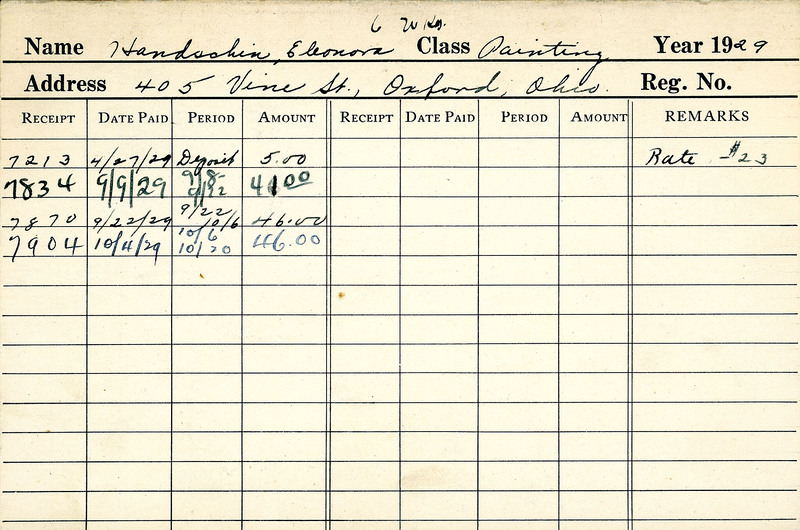 6 Wks.
Name Handschin, Eleonora Class Painting Year 1929
Address 405 Vine St., Oxford, Ohio. Reg. No.
RECEIPT DATE PAID PERIOD AMOUNT RECEIPT DATE PAID PERIOD AMOUNT REMARKS
7213 4/27/29 Deposit 5.00 Rate - $23
7834 9/9/29 9/8- 9/22 41.00
7870 9/22/29 9/22 10/6 46.00
7904 10/4/29 10/6 10/20 46.00